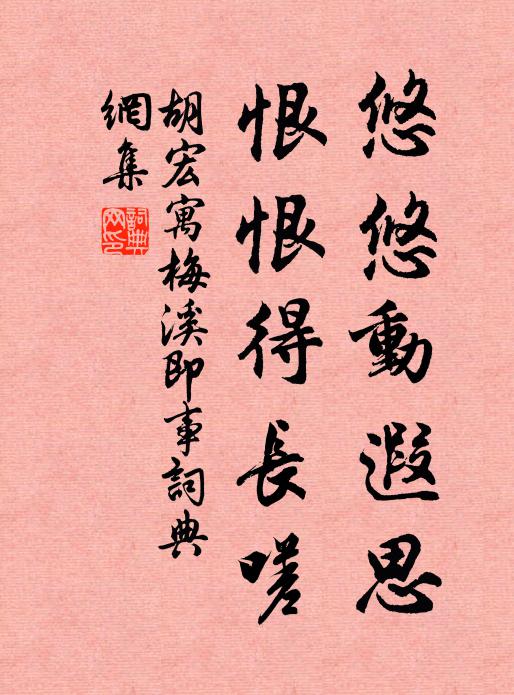 悠悠動遐思
恨恨得長嗟
胡宏寓梅溪即事詞典
網集
詞典網印